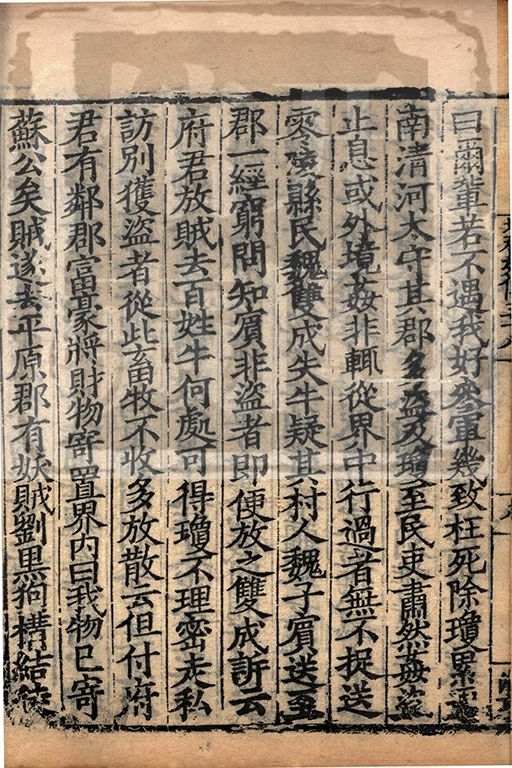 曰爾輩若不遇我好參軍幾致枉死除瓊累遷
南清河太守其郡多盜及瓊至民吏肅然姦盜
止息或外境姦非輒從界中行過者無不捉送
零陵縣民魏雙成失牛疑其村人魏子賓送至
郡一經窮問知賓非盜者即便放之雙成訴云
府君放賊去百姓牛何處可得瓊不理密走私
訪別獲盜者從此畜牧不收多放散云但付府
君有鄰郡富豪將財物寄置界内曰我物已寄
蘇公矣賊遂去平原郡有妖賊劉黑狗構結徒